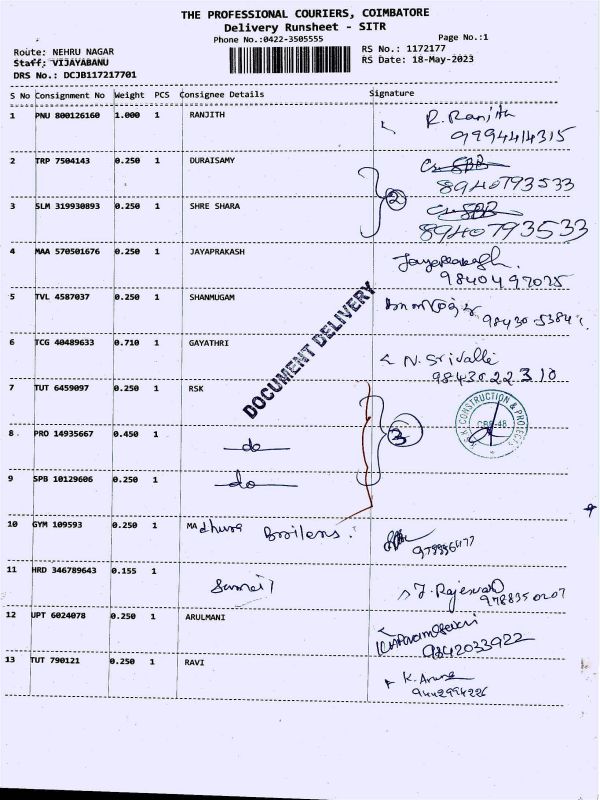 THE PROFESSIONAL COURIERS, COIMBATORE
Delivery Runsheet - SITR
Phone No.:0422-3505555 Page No.:1
Route: NEHRU NAGAR RS No.: 1172177
Staff: VIJAYABANU RS Date: 18-May-2023
DRS No.: DCJB117217701
S No Consignment No Weight PCS Consignee Details Signature
1 PNU 800126160 1.000 1 RANJITH R. Ranjith
9994414315
2 TRP 7504143 0.250 1 DURAISAMY
8940793533
2
3 SLM 319930893 0.250 1 SHRE SHARA
8940793533
4 MAA 570501676 0.250 1 JAYAPRAKASH Jayaprakash
9840497025
5 TVL 4587037 0.250 1 SHANMUGAM
DOCUMENT DELIVERY
6 TCG 40489633 0.710 1 GAYATHRI N. Srivalli
9843022310
7 TUT 6459097 0.250 1 RSK
CONSTRUCTION & PROJECTS
CBE-48
8 PRO 14935667 0.450 1 do
3
9 SPB 10129606 0.250 1 do
10 GYM 109593 0.250 1 MAdhura
11 HRD 346789643 0.155 1
12 UPT 6024078 0.250 1 ARULMANI
9842033922
13 TUT 790121 0.250 1 RAVI K. Aruna
9442994226